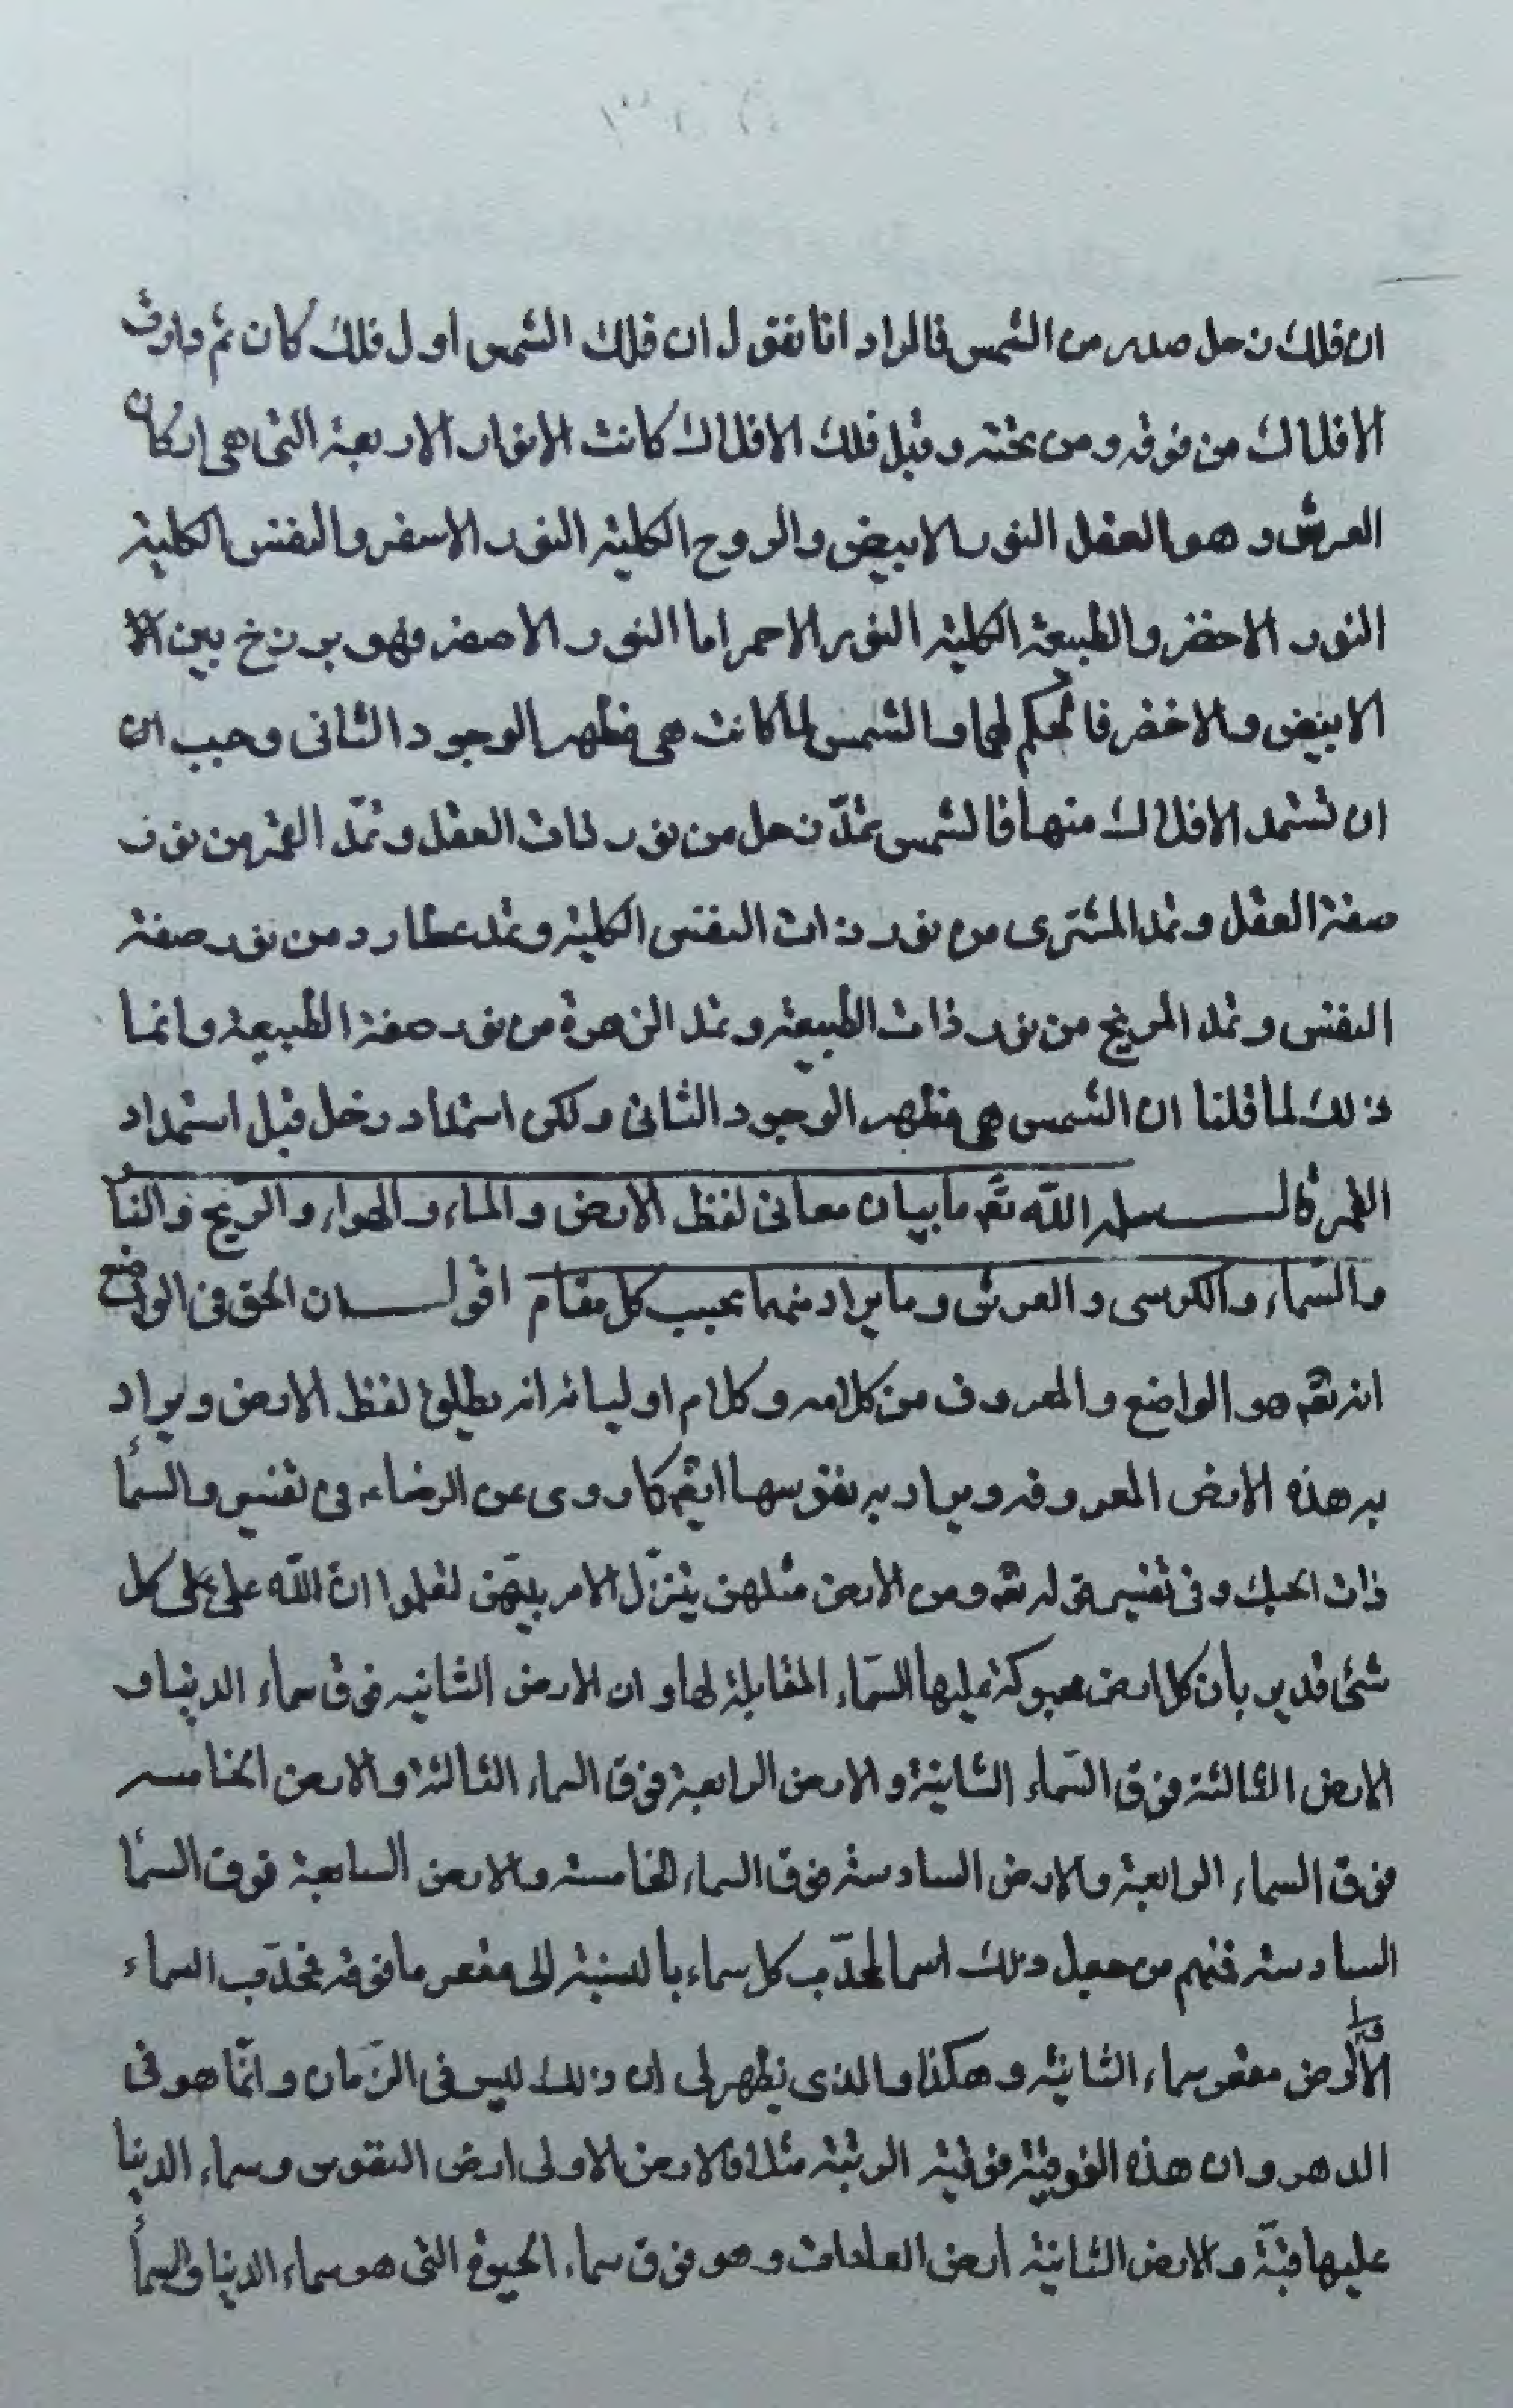 ان فلك زحل صدر من الشمس فالمراد انا نقول ان فلك الشمس اول فلك كان ثم دارت
الافلاك من فوقه ومن تحته وقبل فلك الافلاك كانت الانوار الاربعة التى هى اركان
العرش وهو العقل النور الابيض والروح الكلية النور الاصفر والنفس الكلية
النور الاخضر والطبيعة الكلية النور الاحمر اما النور الاصفر فهو برزخ بين
الابيض والاخضر فالحكم لهما والشمس لما كانت هى مظهر الوجود الثانى وجب ان
ان تستمد الافلاك منها فالشمس تمدّ زحل من نور ذات العقل وتمدّ القمر من نور
صفة العقل وتمد المشترى من نور ذات النفس الكلية وتمد عطارد من نور صفة
النفس وتمد المريخ من نور ذات الطبيعة وتمد الزهرة من نور صفة الطبيعة وانما
ذلك لما قلنا ان الشمس هى مظهر الوجود الثانى ولكن استمداد زحل قبل استمداد
القمر قال سلمه الله تعم ما بيان معانى لفظ الارض والماء والهواء والريح والنا
والسّماء والكرسى والعرش وما يراد منهما بحسب كل مقام اقول ان الحق فى الوضع
انه تعم هو الواضع والمعروف من كلامه وكلام اوليائه انه يطلق لفظ الارض ويراد
به هذه الارض المعروفه ويراد به نفوسها ايضم كما روى عن الرضاء فى تفسير والسمأ
ذات الحبك وفى تفسير قوله تعم ومن الارض مثلهن يتنزّل الامر بينهنّ لتعلموا انّ الله على كل
شئ قدير بأن كل ارض محبوكة يليها السّماء المقابلة لها وان الارض الثانيه فوق سماء الدنيا و
الارض الثالثة فوق السّماء الثانية والارض الرابعة فوق السماء الثالثة والارض الخامسه
فوق السماء الرابعة والارض السادسة فوق السماء الخامسة والارض السابعة فوق السمأ
السادسة فمنهم من جعل ذلك اسما لمحدّب كل سماء بالنسبة الى مقعر ما فوقه فمحدّب السماء
الأرض مقعر سماء الثانية وهكذا والذى يظهر لى ان ذلك ليس فى الزّمان وانّما هو فى
الدهر وان هذه الفوقيّة فوقية الرتبة مثلا فالارض الاولى ارض النفوس وسماء الدنيا
عليها قبّة والارض الثانية ارض العادات وهو فوق سماء الحيوة التى هو سماء الدنيا والسمأ